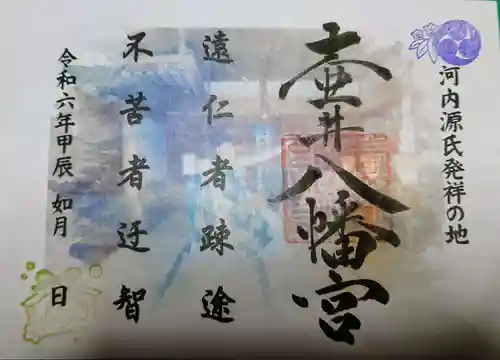 河内源氏発祥の地
壺井八幡宮
遠仁者疎途
不苦者迂智
令和六年甲辰 如月
日